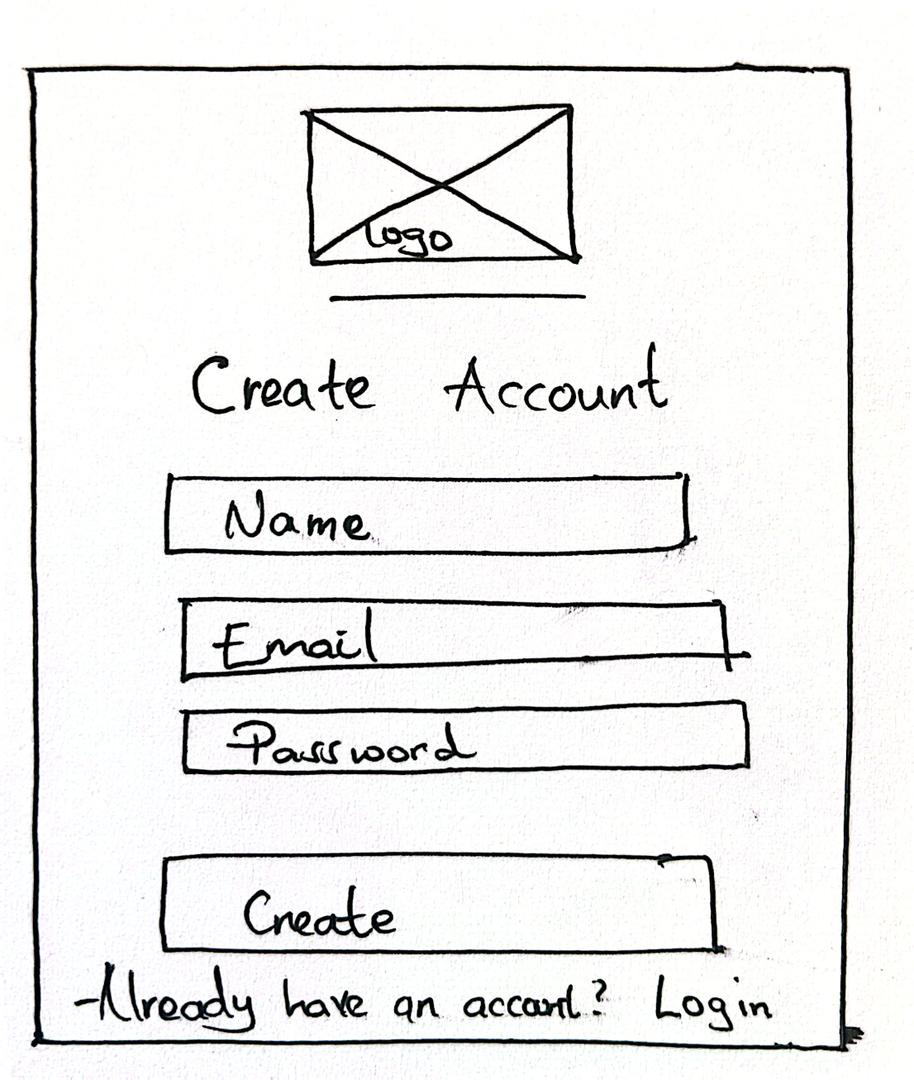 Logo
Create Account
Name
Email
Password
Create
Already have an account? Login